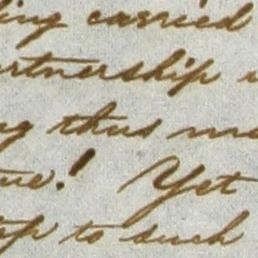 ing carried
artnership
ng thus
ue! Yet
to such